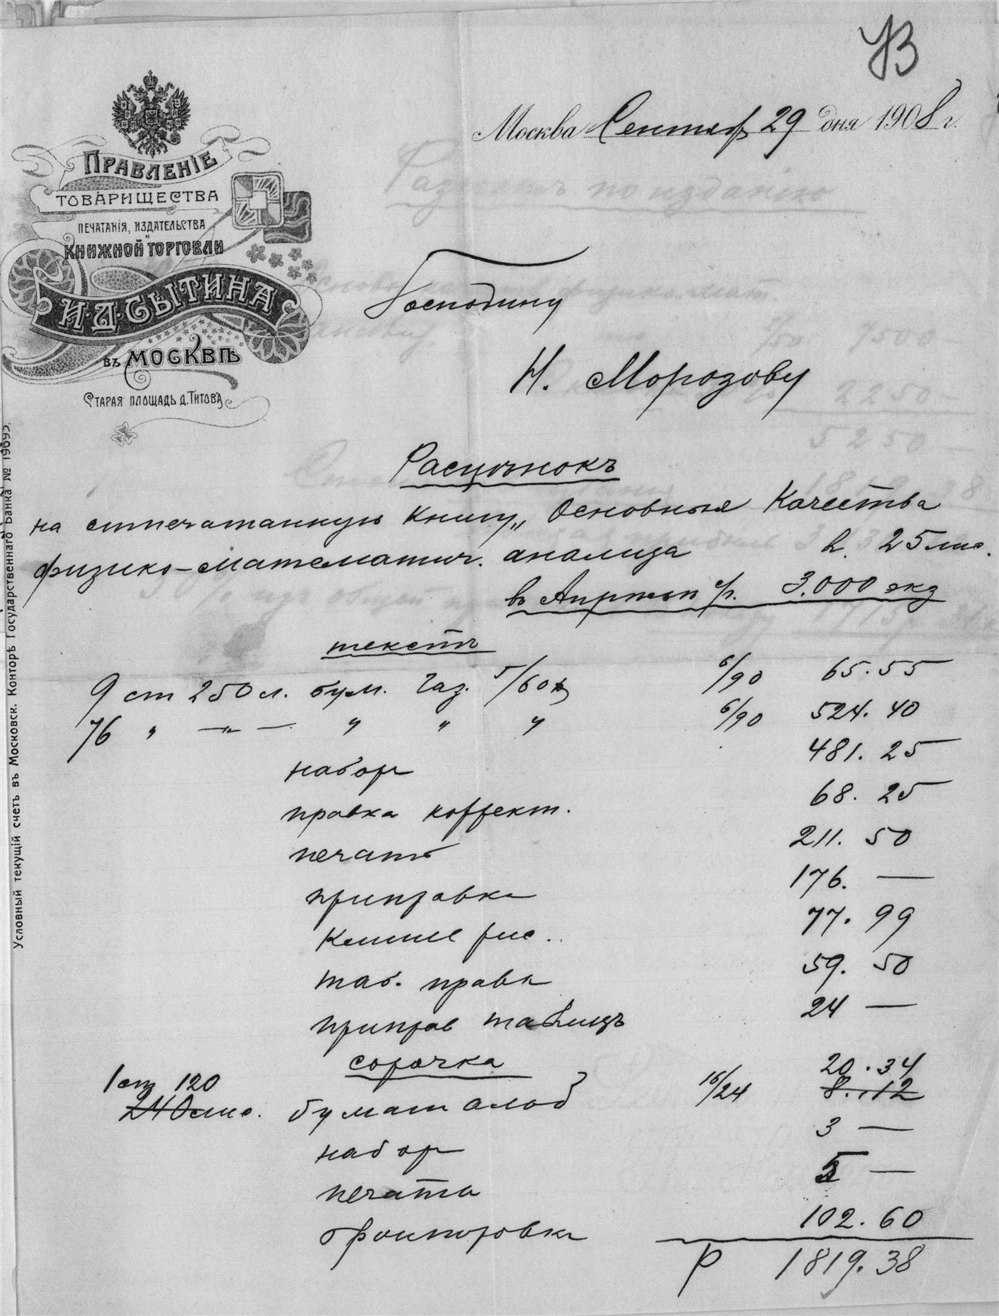 УЗ
Москва Сентяб 29 дня 1908 г.
Правленіе
Товарищества
печатанія, издательства
и
Книжной торговли
И.Д.Сытина
въ Москвѣ
Старая площадь д. Титова
Условный текущій счетъ въ Московск. Конторѣ Государственнаго Банка № 19695.
Господину
Н. Морозову
Расцѣнокъ
на отпечатанную книгу „Основныя Качества
физико-математич. анализа 25 лис.
въ 3.000 экз
текстъ
9 ст 250 л. бум. Газ. 5/60 6/90 65.55
76 " —"— " " " 6/90 524.40
набор 481.25
правка коррект. 68.25
печать 211.50
приправка 176. —
Клише рис.. 77.99
таб. правк 59.50
приправ таблицъ 24 —
сорочка 20.34
1 ст 120
240 лис. бумаг 16/24 8.112
набор 3 —
печать 5 —
брошюровка 102.60
Р 1819.38